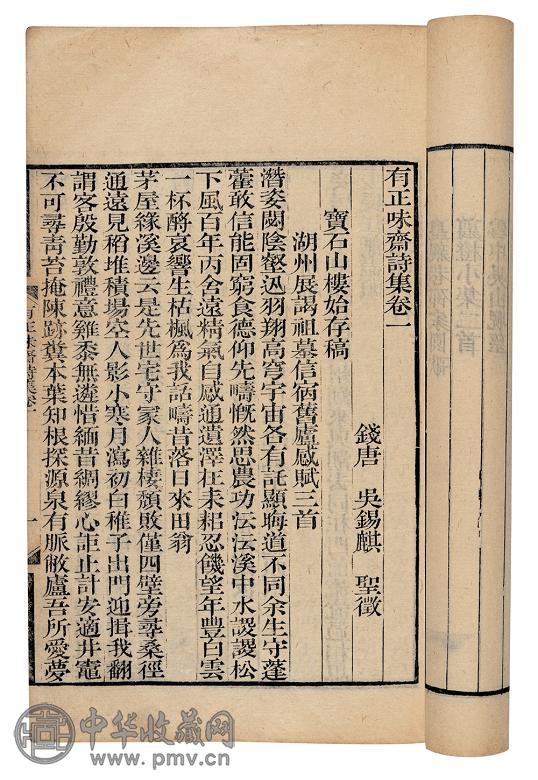 有正味齋詩集卷一
錢唐 吳錫麒 聖徵
寶石山樓始存稿
湖州展謁祖墓信宿舊廬感賦三首
潛委閟陰壑泓羽翔高穹宇宙各有託顯晦道不同余生守蓬
藋敢信能固窮食德仰先疇慨然思農功沄沄溪中水謖謖松
下風百年丙舍遠精氣自感通遺澤在耒耜忍饑望年豐白雲
一杯酹哀響生枯楓為我話疇昔落日來田翁
茅屋緣溪邊云是先世宅守家人雜棲頹敗僅四壁旁尋桑徑
通遠見稻堆積場空人影小寒月瀉初白稚子出門迎揖我翻
謂客殷勤敦禮意雞黍無遑惜緬昔綢繆心詎止計安適井竈
不可尋青苔掩陳跡糞本葉知根探源泉有脈敝廬吾所愛夢
有正味齋詩集卷一
一
中华收藏网
www.pmv.cn